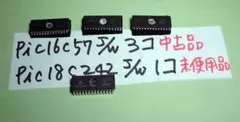 Pic16C57 J/W 3コ中古品
Pic18C242 J/W 1コ未使用品